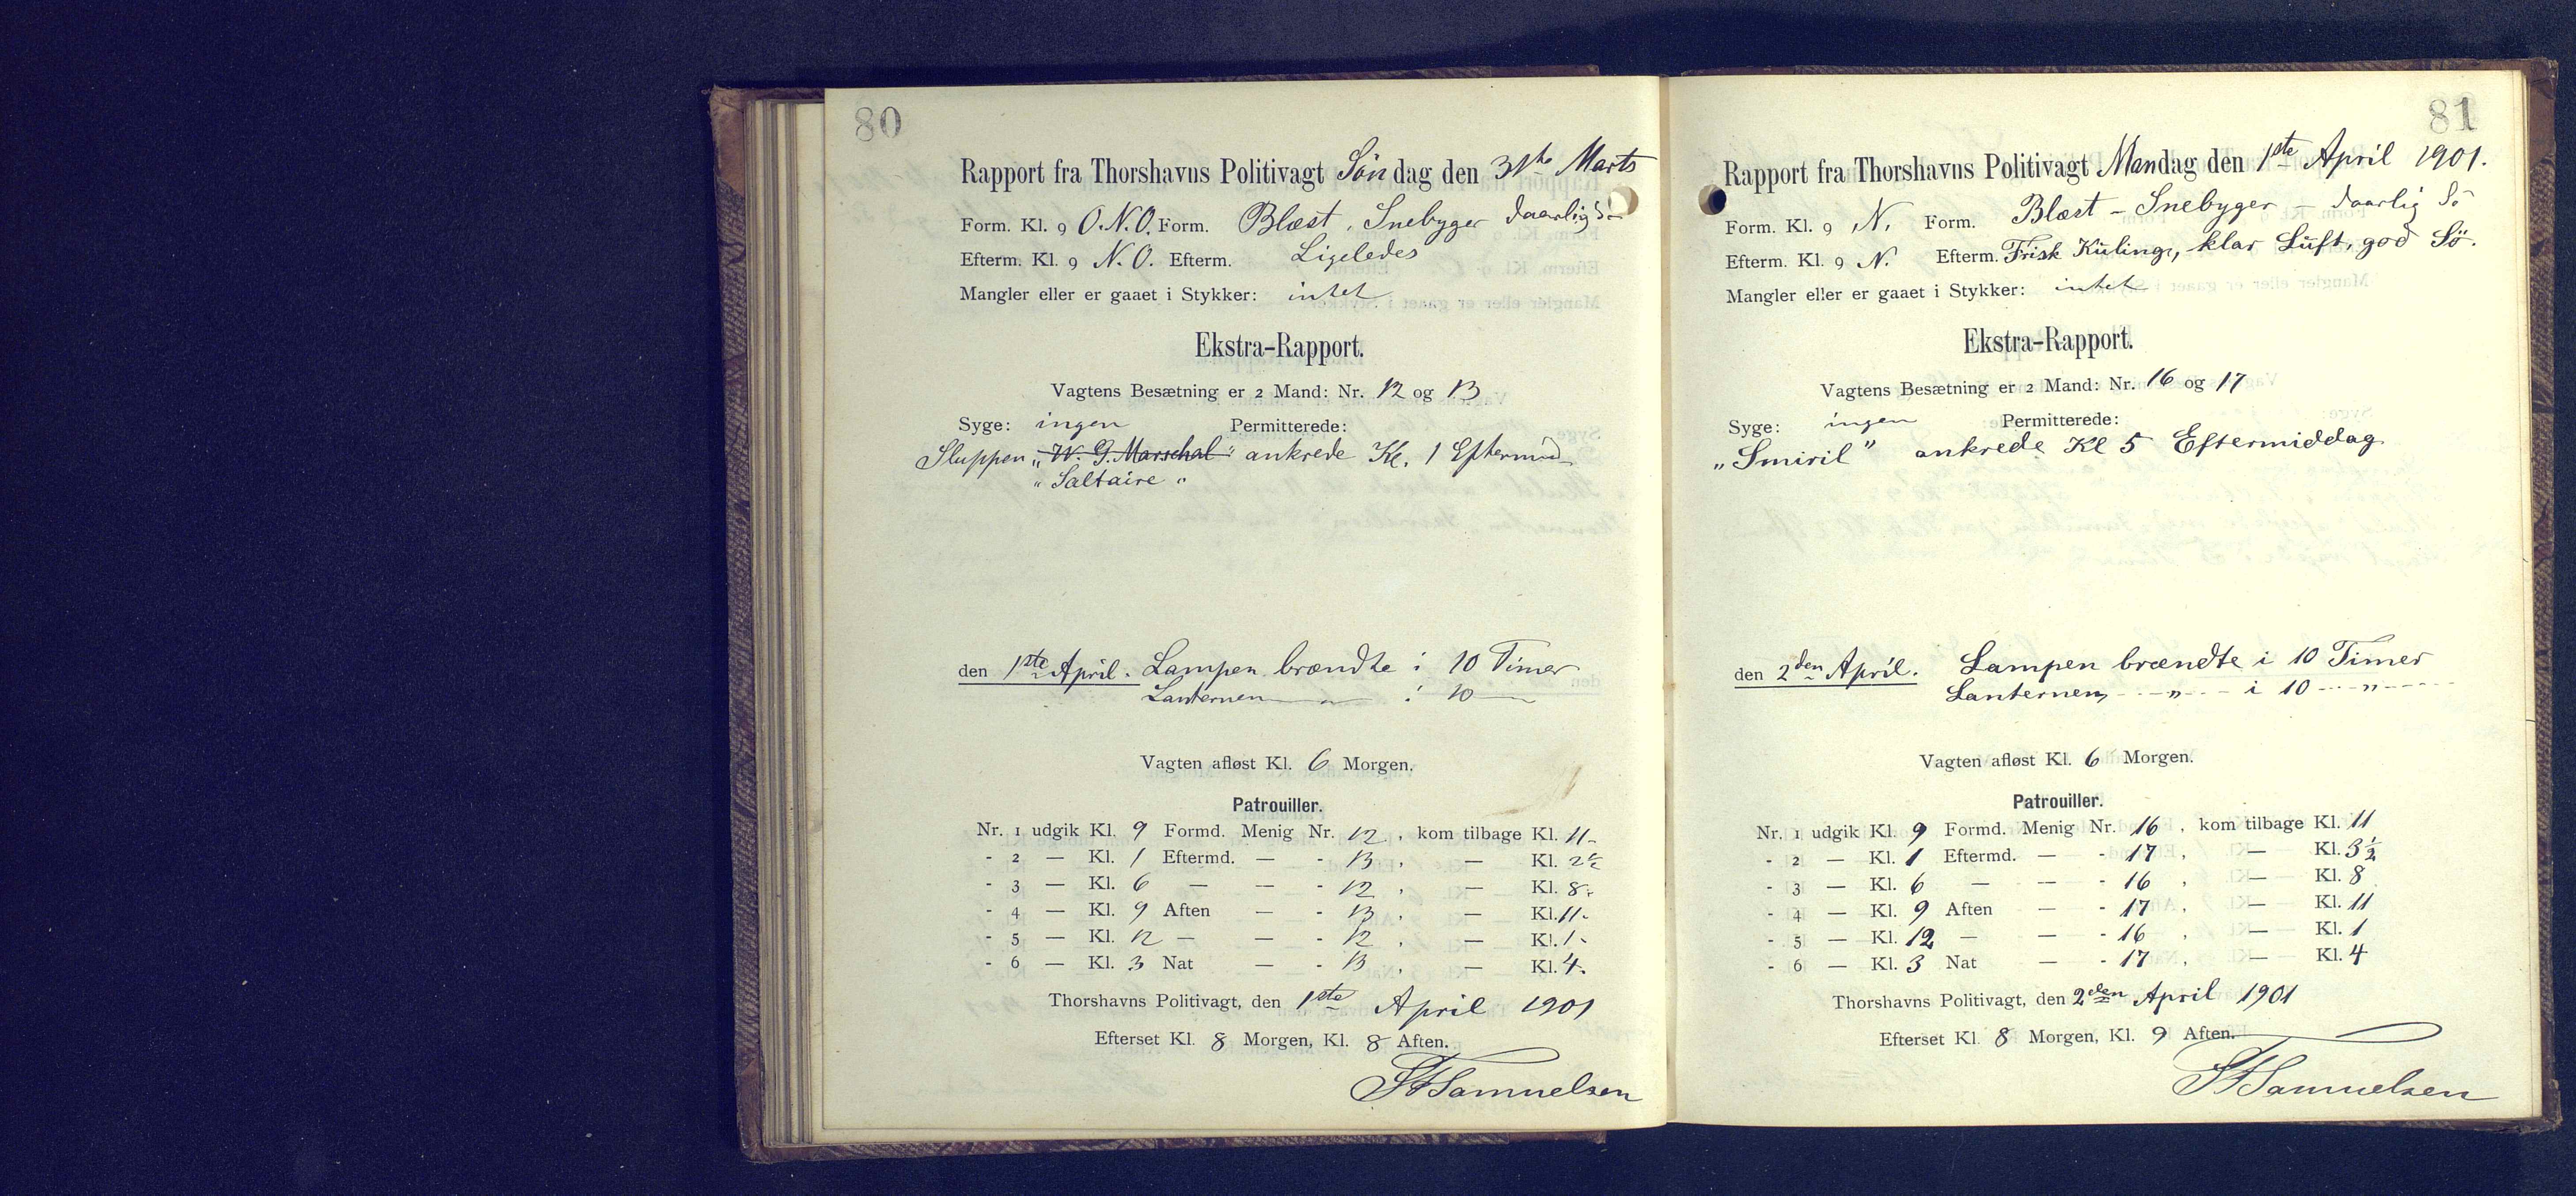 80
Rapport fra Thorshavns Politivagt Søndag den 31te Marts
Form. Kl. 9 O.N.O. Form. Blæst, Snebyger daarlig S
Efterm. Kl. 9 N.O. Efterm. Ligeledes
Mangler eller er gaaet i Stykker: intet
Ekstra-Rapport.
Vagtens Besætning er 2 Mand: Nr. 12 og 13
Syge: ingen Permitterede:
Sluppen „W. G. Marschal" ankrede Kl. 1 Eftermid
"Saltaire"
den 1ste April. Lampen brændte i 10 Timer
Lanternen — " — i 10 —
Vagten afløst Kl. 6 Morgen.
Patrouiller.
Nr. 1 udgik Kl. 9 Formd. Menig Nr. 12, kom tilbage Kl. 11-
- 2 — Kl. 1 Eftermd. — - 13, — Kl. 2½
- 3 — Kl. 6 — — - 12, — Kl. 8-
- 4 — Kl. 9 Aften — - 13, — Kl. 11-
- 5 — Kl. 12 — — - 12, — Kl. 1-
- 6 — Kl. 3 Nat — - 13, — Kl. 4-
Thorshavns Politivagt, den 1ste April 1901
Efterset Kl. 8 Morgen, Kl. 8 Aften.
Samuelsen
81
Rapport fra Thorshavns Politivagt Mandag den 1ste April 1901.
Form. Kl. 9 N. Form. Blæst - Snebyger - daarlig Sö
Efterm. Kl. 9 N. Efterm. Frisk Kuling, klar Luft, god Sö.
Mangler eller er gaaet i Stykker: intet
Ekstra-Rapport.
Vagtens Besætning er 2 Mand: Nr. 16 og 17
Syge: ingen Permitterede:
„Smiril" ankrede Kl 5 Eftermiddag
den 2den April. Lampen brændte i 10 Timer
Lanternen - - " - - i 10 - - " - -
Vagten afløst Kl. 6 Morgen.
Patrouiller.
Nr. 1 udgik Kl. 9 Formd. Menig Nr. 16, kom tilbage Kl. 11
- 2 — Kl. 1 Eftermd. — - 17, — Kl. 3½
- 3 — Kl. 6 — — - 16, — Kl. 8
- 4 — Kl. 9 Aften — - 17, — Kl. 11
- 5 — Kl. 12 — — - 16, — Kl. 1
- 6 — Kl. 3 Nat — - 17, — Kl. 4
Thorshavns Politivagt, den 2den April 1901
Efterset Kl. 8 Morgen, Kl. 9 Aften.
Samuelsen